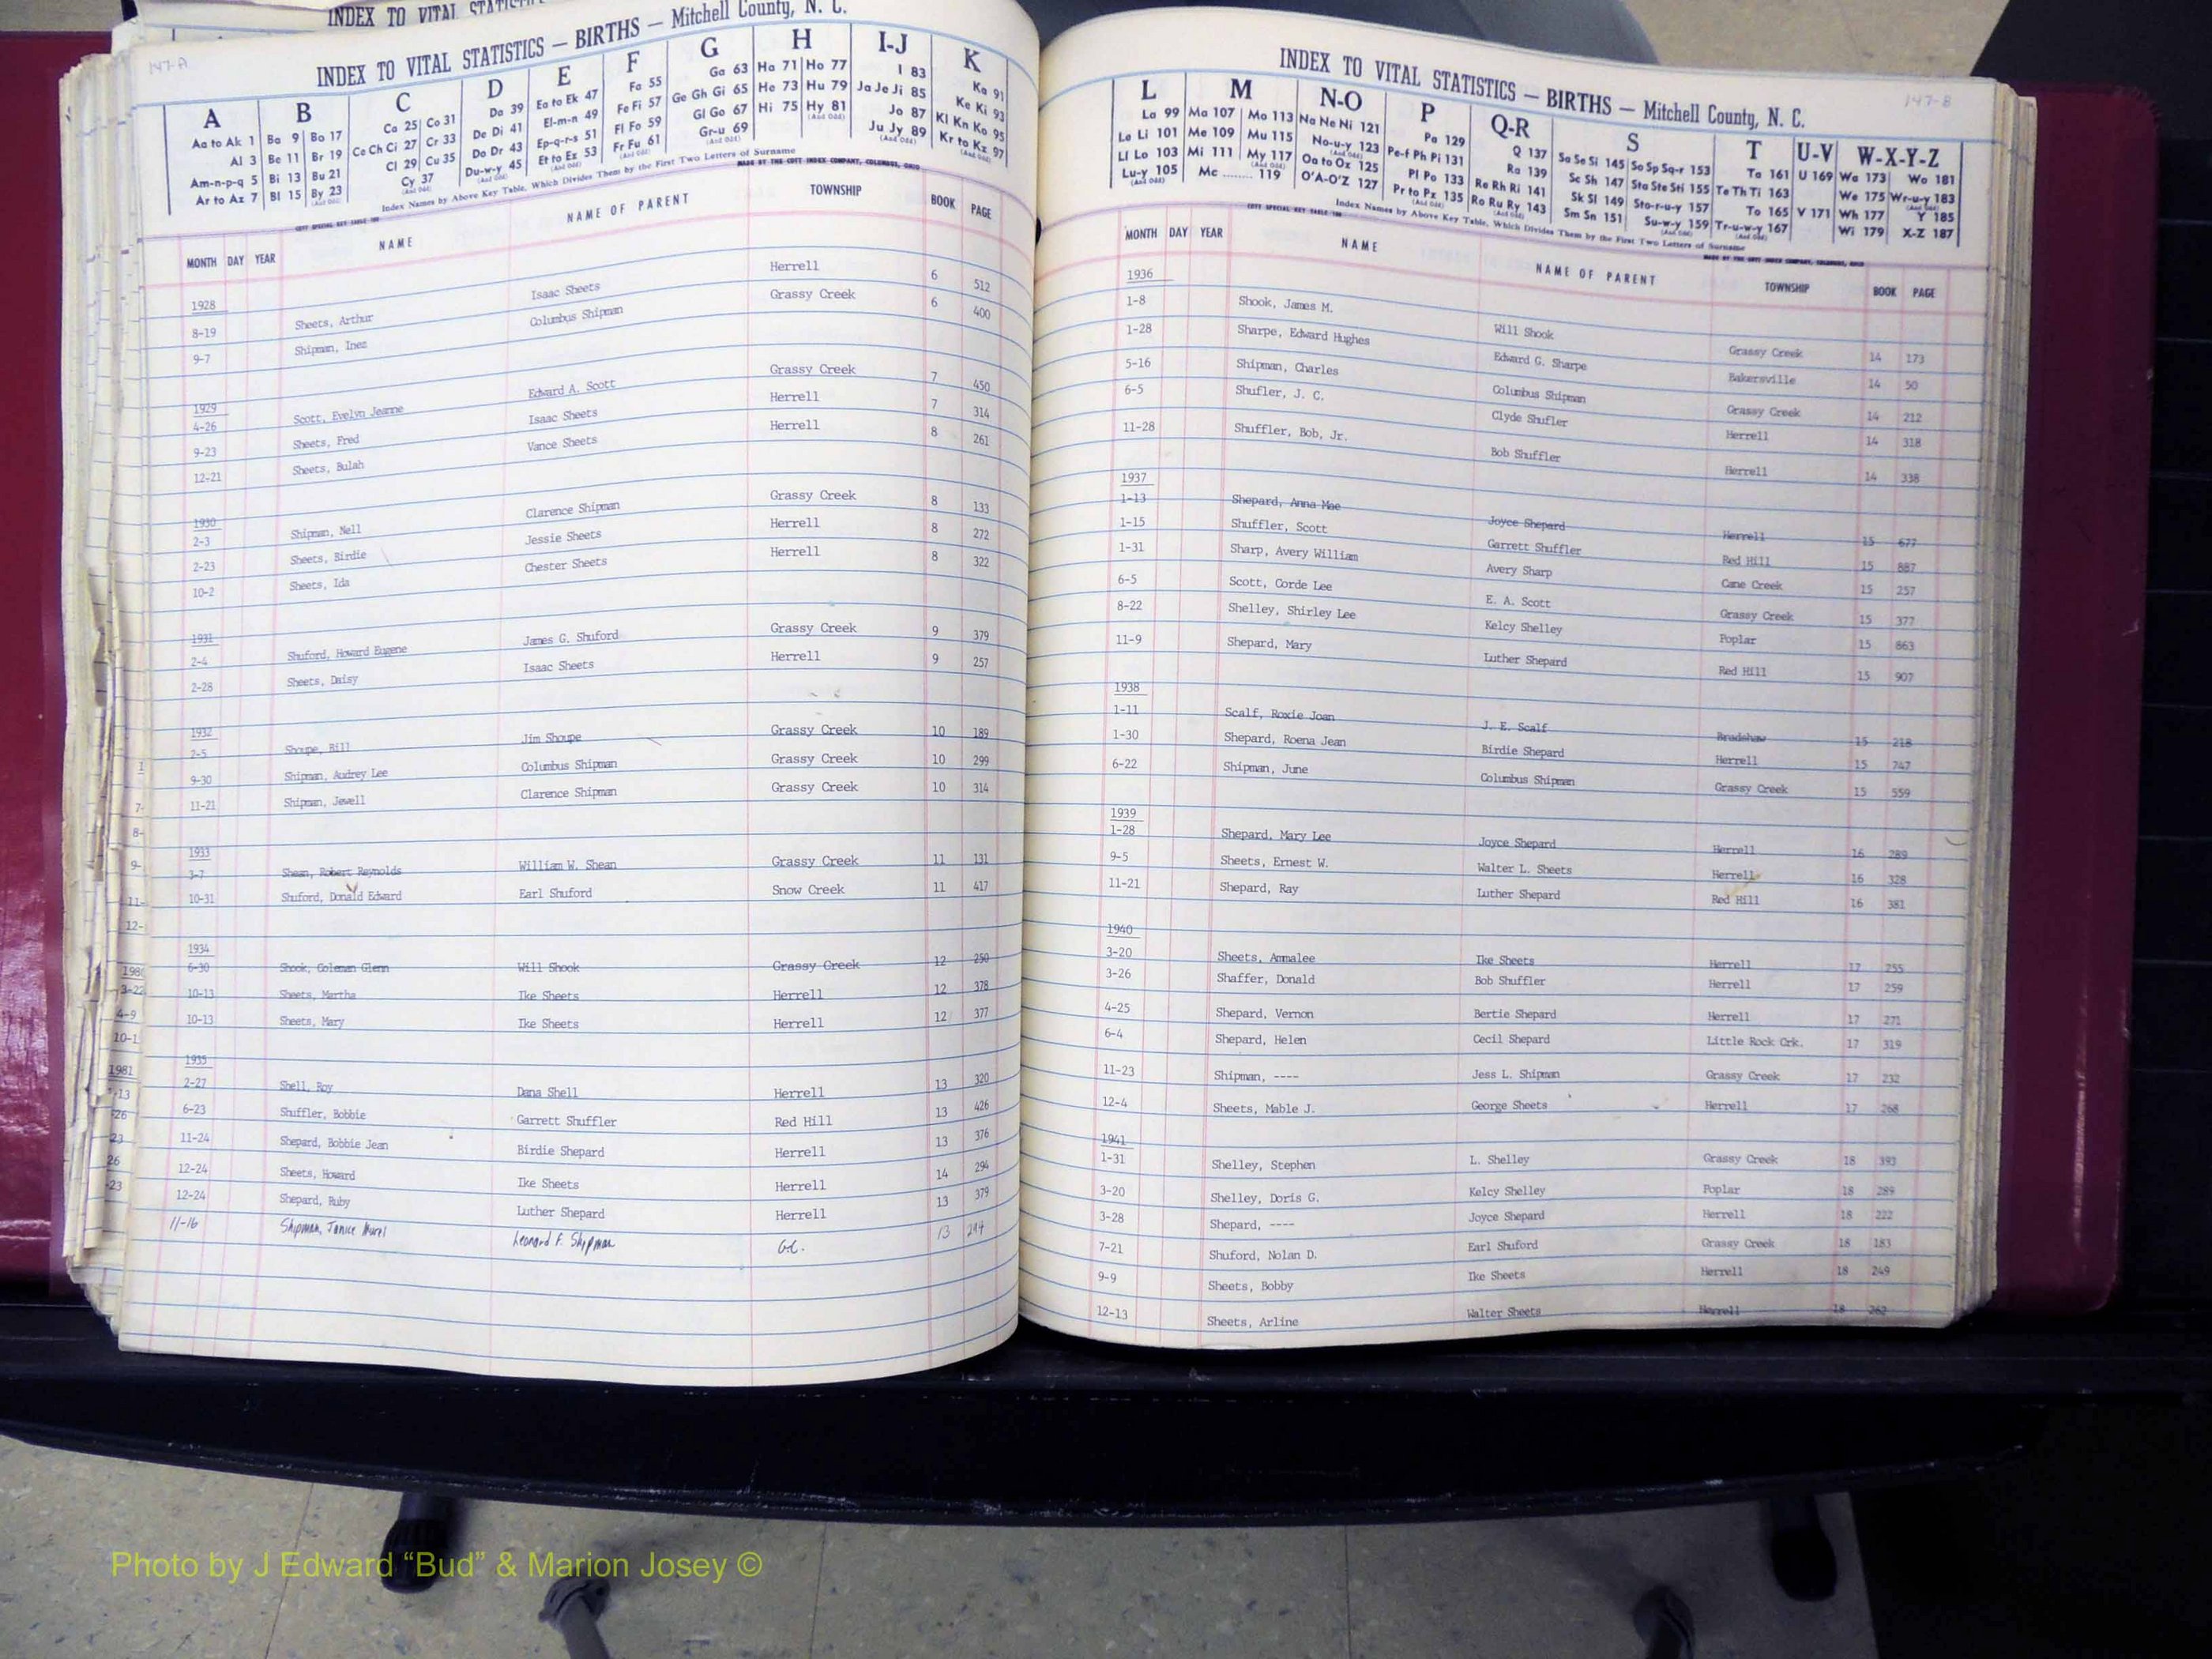 INDEX TO VITAL STATISTICS
147-A
INDEX TO VITAL STATISTICS — BIRTHS — Mitchell County, N. C.
A B C D E F G H I-J K
Aa to Ak 1 Ba 9 Bo 17 Ca 25 Co 31 Da 39 Ea to Ek 47 Fa 55 Ga 63 Ha 71 Ho 77 I 83 Ka 91
Al 3 Be 11 Br 19 Ce Ch Ci 27 Cr 33 De Di 41 El-m-n 49 Fe Fi 57 Ge Gh Gi 65 He 73 Hu 79 Ja Je Ji 85 Ke Ki 93
Am-n-p-q 5 Bi 13 Bu 21 Cl 29 Cu 35 Do Dr 43 Ep-q-r-s 51 Fl Fo 59 Gl Go 67 Hi 75 Hy 81 Jo 87 Kl Kn Ko 95
Ar to Az 7 Bl 15 By 23 Cy 37 Du-w-y 45 Et to Ez 53 Fr Fu 61 Gr-u 69 Ju Jy 89 Kr to Kz 97
Index Names by Above Key Table, Which Divides Them by the First Two Letters of Surname
MADE BY THE COTT INDEX COMPANY, COLUMBUS, OHIO
MONTH DAY YEAR NAME NAME OF PARENT TOWNSHIP BOOK PAGE
1928
8-19 Sheets, Arthur Isaac Sheets Herrell 6 512
9-7 Shipman, Inez Columbus Shipman Grassy Creek 6 400
1929
4-26 Scott, Evelyn Jeanne Edward A. Scott Grassy Creek 7 450
9-23 Sheets, Fred Isaac Sheets Herrell 7 314
12-21 Sheets, Bulah Vance Sheets Herrell 8 261
1930
2-3 Shipman, Nell Clarence Shipman Grassy Creek 8 133
2-23 Sheets, Birdie Jessie Sheets Herrell 8 272
10-2 Sheets, Ida Chester Sheets Herrell 8 322
1931
2-4 Shuford, Howard Eugene James G. Shuford Grassy Creek 9 379
2-28 Sheets, Daisy Isaac Sheets Herrell 9 257
1932
2-5 Shoupe, Bill Jim Shoupe Grassy Creek 10 189
9-30 Shipman, Audrey Lee Columbus Shipman Grassy Creek 10 299
11-21 Shipman, Jewell Clarence Shipman Grassy Creek 10 314
1933
3-7 Shean, Robert Reynolds William W. Shean Grassy Creek 11 131
10-31 Shuford, Donald Edward Earl Shuford Snow Creek 11 417
1934
6-30 Shook, Coleman Glenn Will Shook Grassy Creek 12 250
10-13 Sheets, Martha Ike Sheets Herrell 12 378
10-13 Sheets, Mary Ike Sheets Herrell 12 377
1935
2-27 Shell, Roy Dana Shell Herrell 13 320
6-23 Shuffler, Bobbie Garrett Shuffler Red Hill 13 426
11-24 Shepard, Bobbie Jean Birdie Shepard Herrell 13 376
12-24 Sheets, Howard Ike Sheets Herrell 14 294
12-24 Shepard, Ruby Luther Shepard Herrell 13 379
11-16 Shipman, Janice Leonard F. Shipman G.C. 13 244
147-B
INDEX TO VITAL STATISTICS — BIRTHS — Mitchell County, N. C.
L M N-O P Q-R S T U-V W-X-Y-Z
La 99 Ma 107 Mo 113 Na Ne Ni 121 Pa 129 Q 137 Sa Se Si 145 So Sp Sq-r 153 Ta 161 U 169 Wa 173 Wo 181
Le Li 101 Me 109 Mu 115 No-u-y 123 Pe-f Ph Pi 131 Ra 139 Sc Sh 147 Sta Ste Sti 155 Te Th Ti 163 We 175 Wr-u-y 183
Ll Lo 103 Mi 111 My 117 Oa to Oz 125 Pl Po 133 Re Rh Ri 141 Sk Sl 149 Sto-r-u-y 157 To 165 V 171 Wh 177 Y 185
Lu-y 105 Mc ........ 119 O'A-O'Z 127 Pr to Pz 135 Ro Ru Ry 143 Sm Sn 151 Su-w-y 159 Tr-u-w-y 167 Wi 179 X-Z 187
Index Names by Above Key Table, Which Divides Them by the First Two Letters of Surname
MADE BY THE COTT INDEX COMPANY, COLUMBUS, OHIO
MONTH DAY YEAR NAME NAME OF PARENT TOWNSHIP BOOK PAGE
1936
1-8 Shook, James M. Will Shook Grassy Creek 14 173
1-28 Sharpe, Edward Hughes Edward G. Sharpe Bakersville 14 50
5-16 Shipman, Charles Columbus Shipman Grassy Creek 14 212
6-5 Shufler, J. C. Clyde Shufler Herrell 14 318
11-28 Shuffler, Bob, Jr. Bob Shuffler Herrell 14 338
1937
1-13 Shepard, Anna Mae Joyce Shepard Herrell 15 677
1-15 Shuffler, Scott Garrett Shuffler Red Hill 15 887
1-31 Sharp, Avery William Avery Sharp Cane Creek 15 257
6-5 Scott, Corde Lee E. A. Scott Grassy Creek 15 377
8-22 Shelley, Shirley Lee Kelcy Shelley Poplar 15 863
11-9 Shepard, Mary Luther Shepard Red Hill 15 907
1938
1-11 Scalf, Roxie Joan J. E. Scalf Bradshaw 15 218
1-30 Shepard, Roena Jean Birdie Shepard Herrell 15 747
6-22 Shipman, June Columbus Shipman Grassy Creek 15 559
1939
1-28 Shepard, Mary Lee Joyce Shepard Herrell 16 289
9-5 Sheets, Ernest W. Walter L. Sheets Herrell 16 328
11-21 Shepard, Ray Luther Shepard Red Hill 16 381
1940
3-20 Sheets, Ammalee Ike Sheets Herrell 17 255
3-26 Shaffer, Donald Bob Shuffler Herrell 17 259
4-25 Shepard, Vernon Bertie Shepard Herrell 17 271
6-4 Shepard, Helen Cecil Shepard Little Rock Crk. 17 319
11-23 Shipman, ---- Jess L. Shipman Grassy Creek 17 232
12-4 Sheets, Mable J. George Sheets Herrell 17 268
1941
1-31 Shelley, Stephen L. Shelley Grassy Creek 18 393
3-20 Shelley, Doris G. Kelcy Shelley Poplar 18 289
3-28 Shepard, ---- Joyce Shepard Herrell 18 222
7-21 Shuford, Nolan D. Earl Shuford Grassy Creek 18 183
9-9 Sheets, Bobby Ike Sheets Herrell 18 249
12-13 Sheets, Arline Walter Sheets Herrell 18 262
Photo by J Edward “Bud” & Marion Josey ©